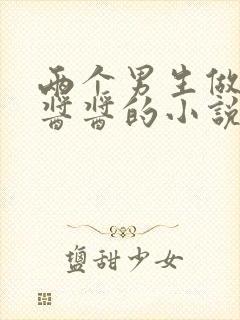 两个男生做
酱酱的小说
盐甜少女